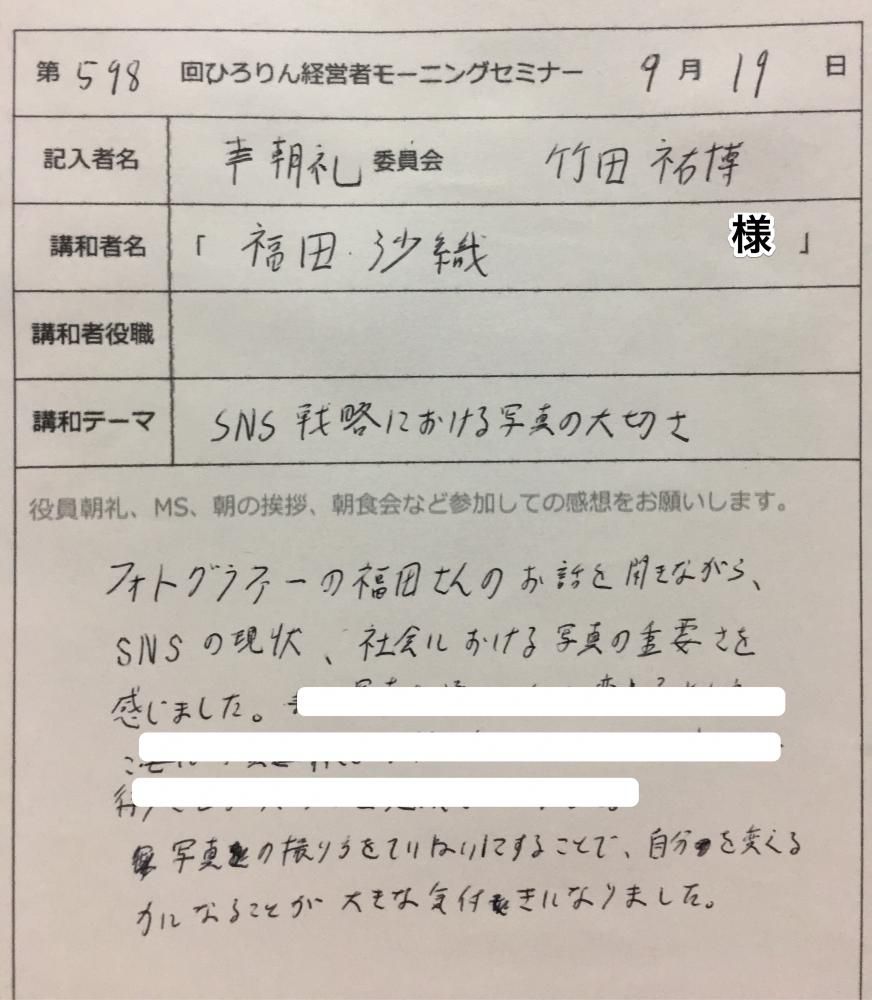 第 598 回ひろりん経営者モーニングセミナー 9 月 19 日
記入者名 朝礼 委員会 竹田 祐博
講和者名 「 福田 沙織 様 」
講和者役職
講和テーマ SNS 戦略における写真の大切さ
役員朝礼、MS、朝の挨拶、朝食会など参加しての感想をお願いします。
フォトグラファーの福田さんのお話を聞きながら、
SNSの現状、社会における写真の重要さを
感じました。
写真の撮り方をていねいにすることで、自分を変える
力になることが大きな気付きになりました。